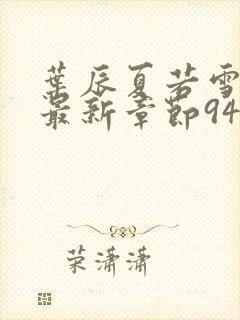 葉辰夏若雪
最新章節94
荣潇潇